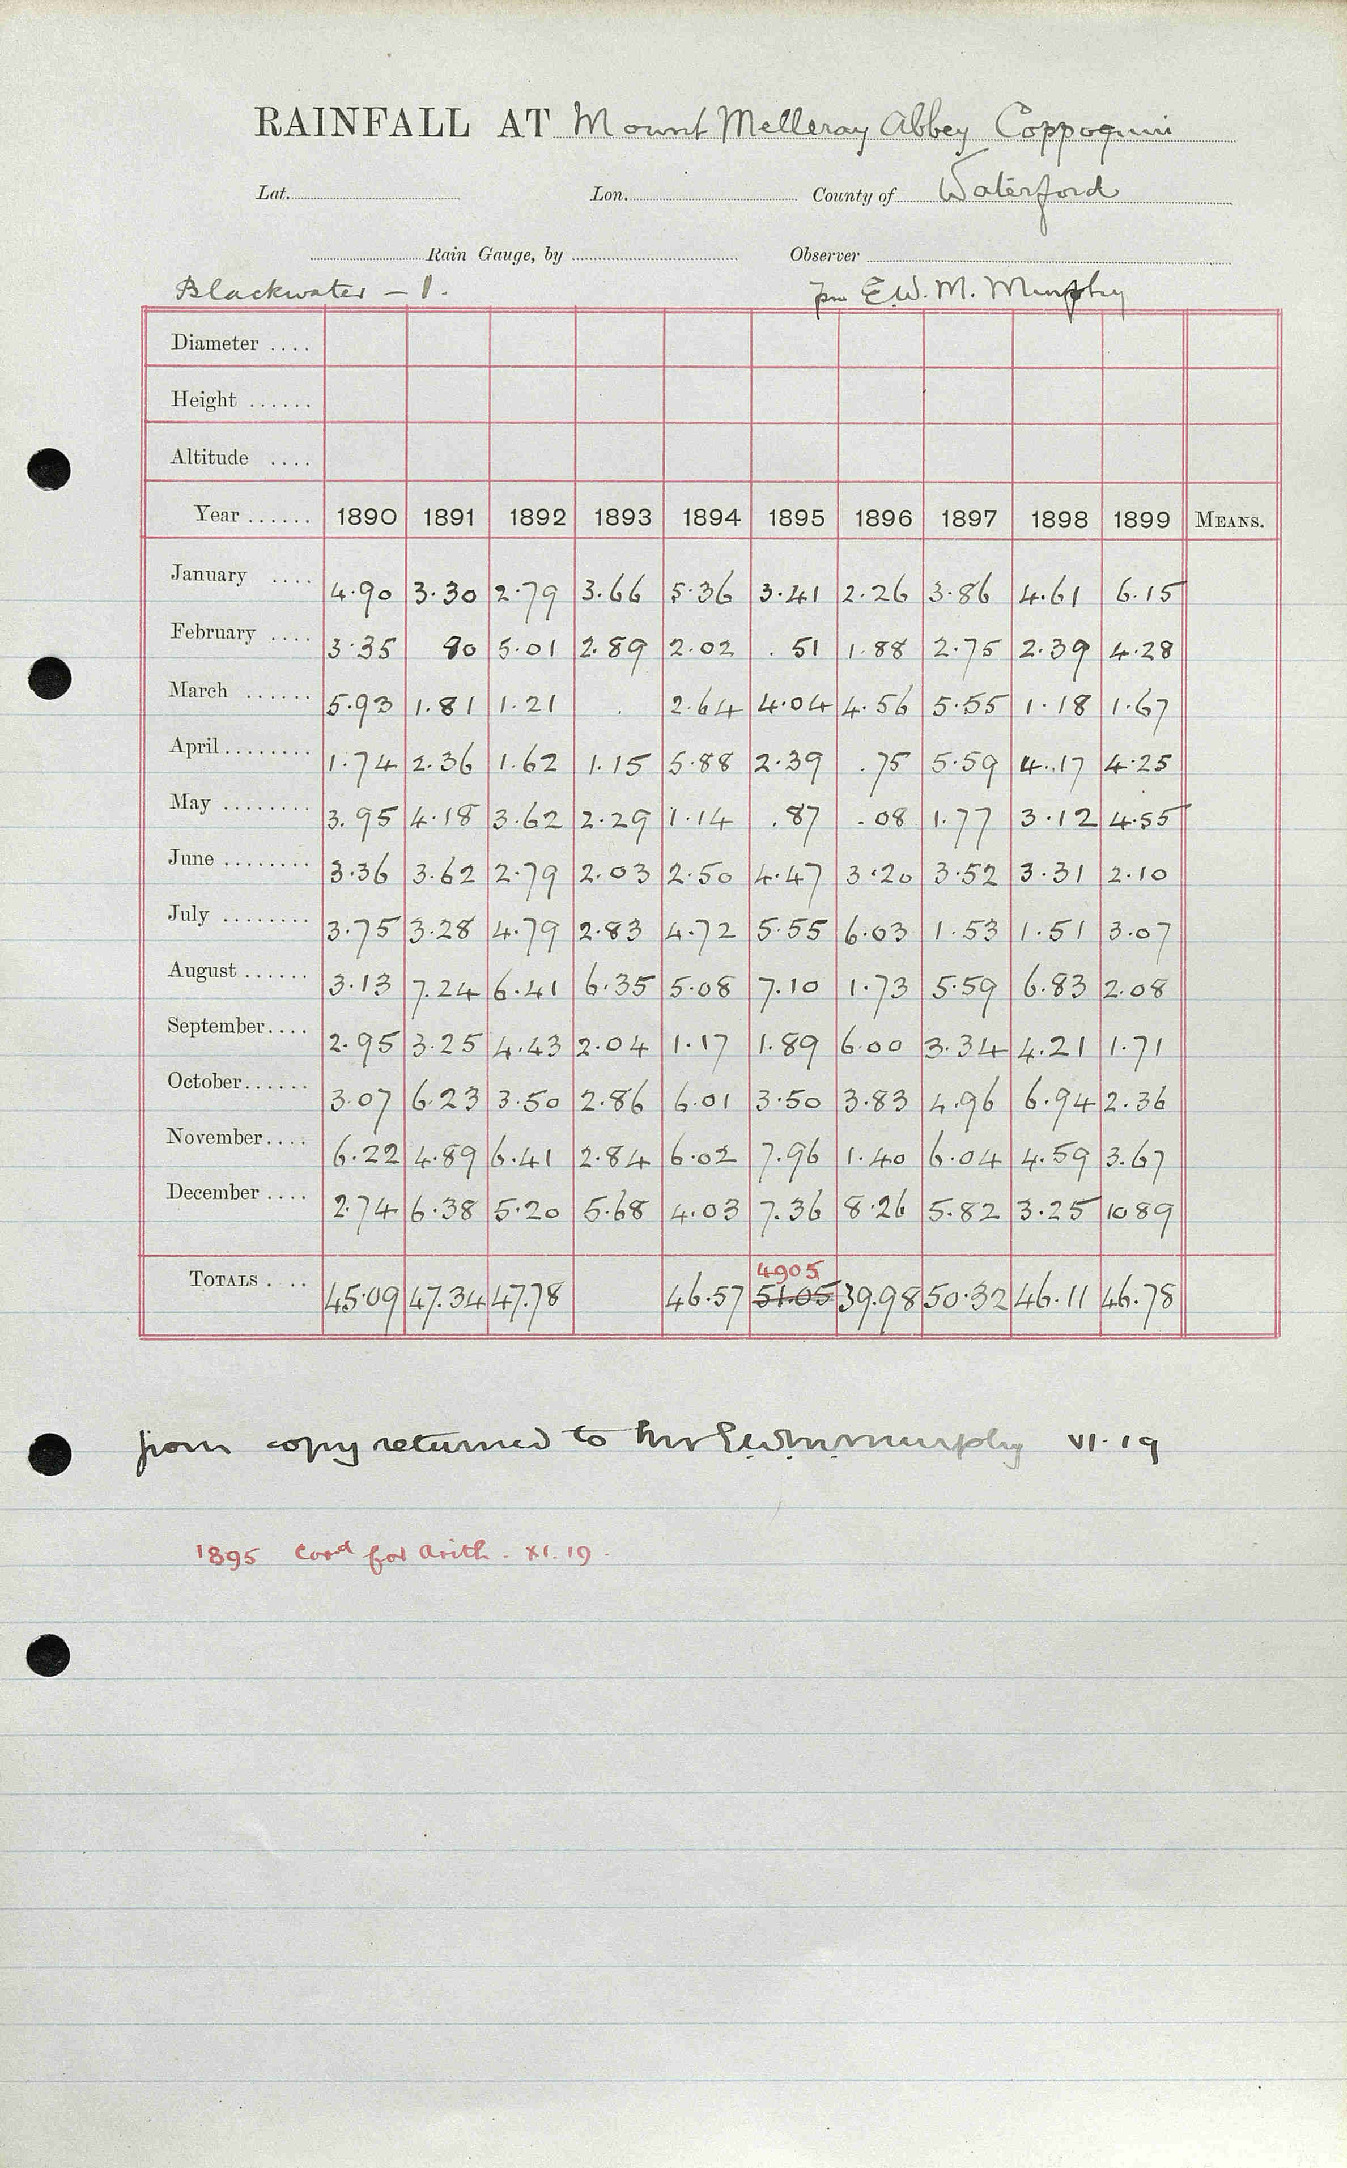 RAINFALL AT Mount Melleray Abbey Cappoquin
Lat. Lon. County of Waterford
Rain Gauge, by Observer
Blackwater - 1. per E.W.M. Murphy
Diameter ....
Height ......
Altitude ....
Year ...... 1890 1891 1892 1893 1894 1895 1896 1897 1898 1899 MEANS.
January .... 4.90 3.30 2.79 3.66 5.36 3.41 2.26 3.86 4.61 6.15
February .... 3.35 80 5.01 2.89 2.02 .51 1.88 2.75 2.39 4.28
March ...... 5.93 1.81 1.21 . 2.64 4.04 4.56 5.55 1.18 1.67
April ........ 1.74 2.36 1.62 1.15 5.88 2.39 .75 5.59 4.17 4.25
May ........ 3.95 4.18 3.62 2.29 1.14 .87 .08 1.77 3.12 4.55
June ........ 3.36 3.62 2.79 2.03 2.50 4.47 3.20 3.52 3.31 2.10
July ........ 3.75 3.28 4.79 2.83 4.72 5.55 6.03 1.53 1.51 3.07
August ...... 3.13 7.24 6.41 6.35 5.08 7.10 1.73 5.59 6.83 2.08
September.... 2.95 3.25 4.43 2.04 1.17 1.89 6.00 3.34 4.21 1.71
October...... 3.07 6.23 3.50 2.86 6.01 3.50 3.83 4.96 6.94 2.36
November.... 6.22 4.89 6.41 2.84 6.02 7.96 1.40 6.04 4.59 3.67
December .... 2.74 6.38 5.20 5.68 4.03 7.36 8.26 5.82 3.25 10 89
4905
TOTALS .... 45.09 47.34 47.78 46.57 51.05 39.98 50.32 46.11 46.78
from copy returned to Mr E.W.M. Murphy VI.19
1895 Cord for arith. XI.19.